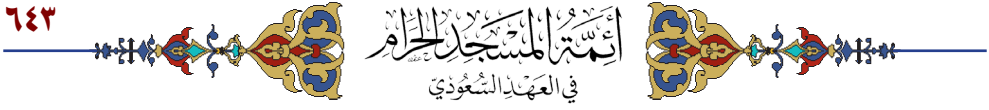 ٦٤٣
أَئِمَّةُ المَسْجِدِ الحَرَامِ
في العَهْدِ السُّعُودِيِّ